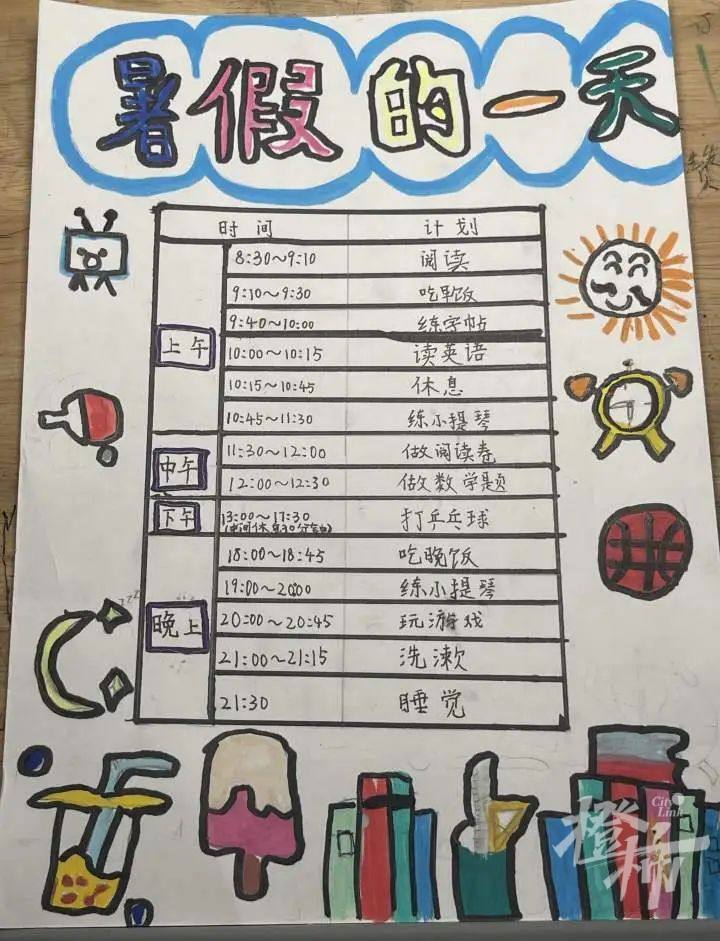 暑假的一天
时间 计划
上午
8:30~9:10 阅读
9:10~9:30 吃早饭
9:40~10:00 练字帖
10:00~10:15 读英语
10:15~10:45 休息
10:45~11:30 练小提琴
中午
11:30~12:00 做阅读卷
12:00~12:30 做数学题
下午
13:00~17:30 打乒乓球
(中间休息30分钟)
晚上
18:00~18:45 吃晚饭
19:00~20:00 练小提琴
20:00~20:45 玩游戏
21:00~21:15 洗漱
21:30 睡觉
zzz
City Link
橙柿